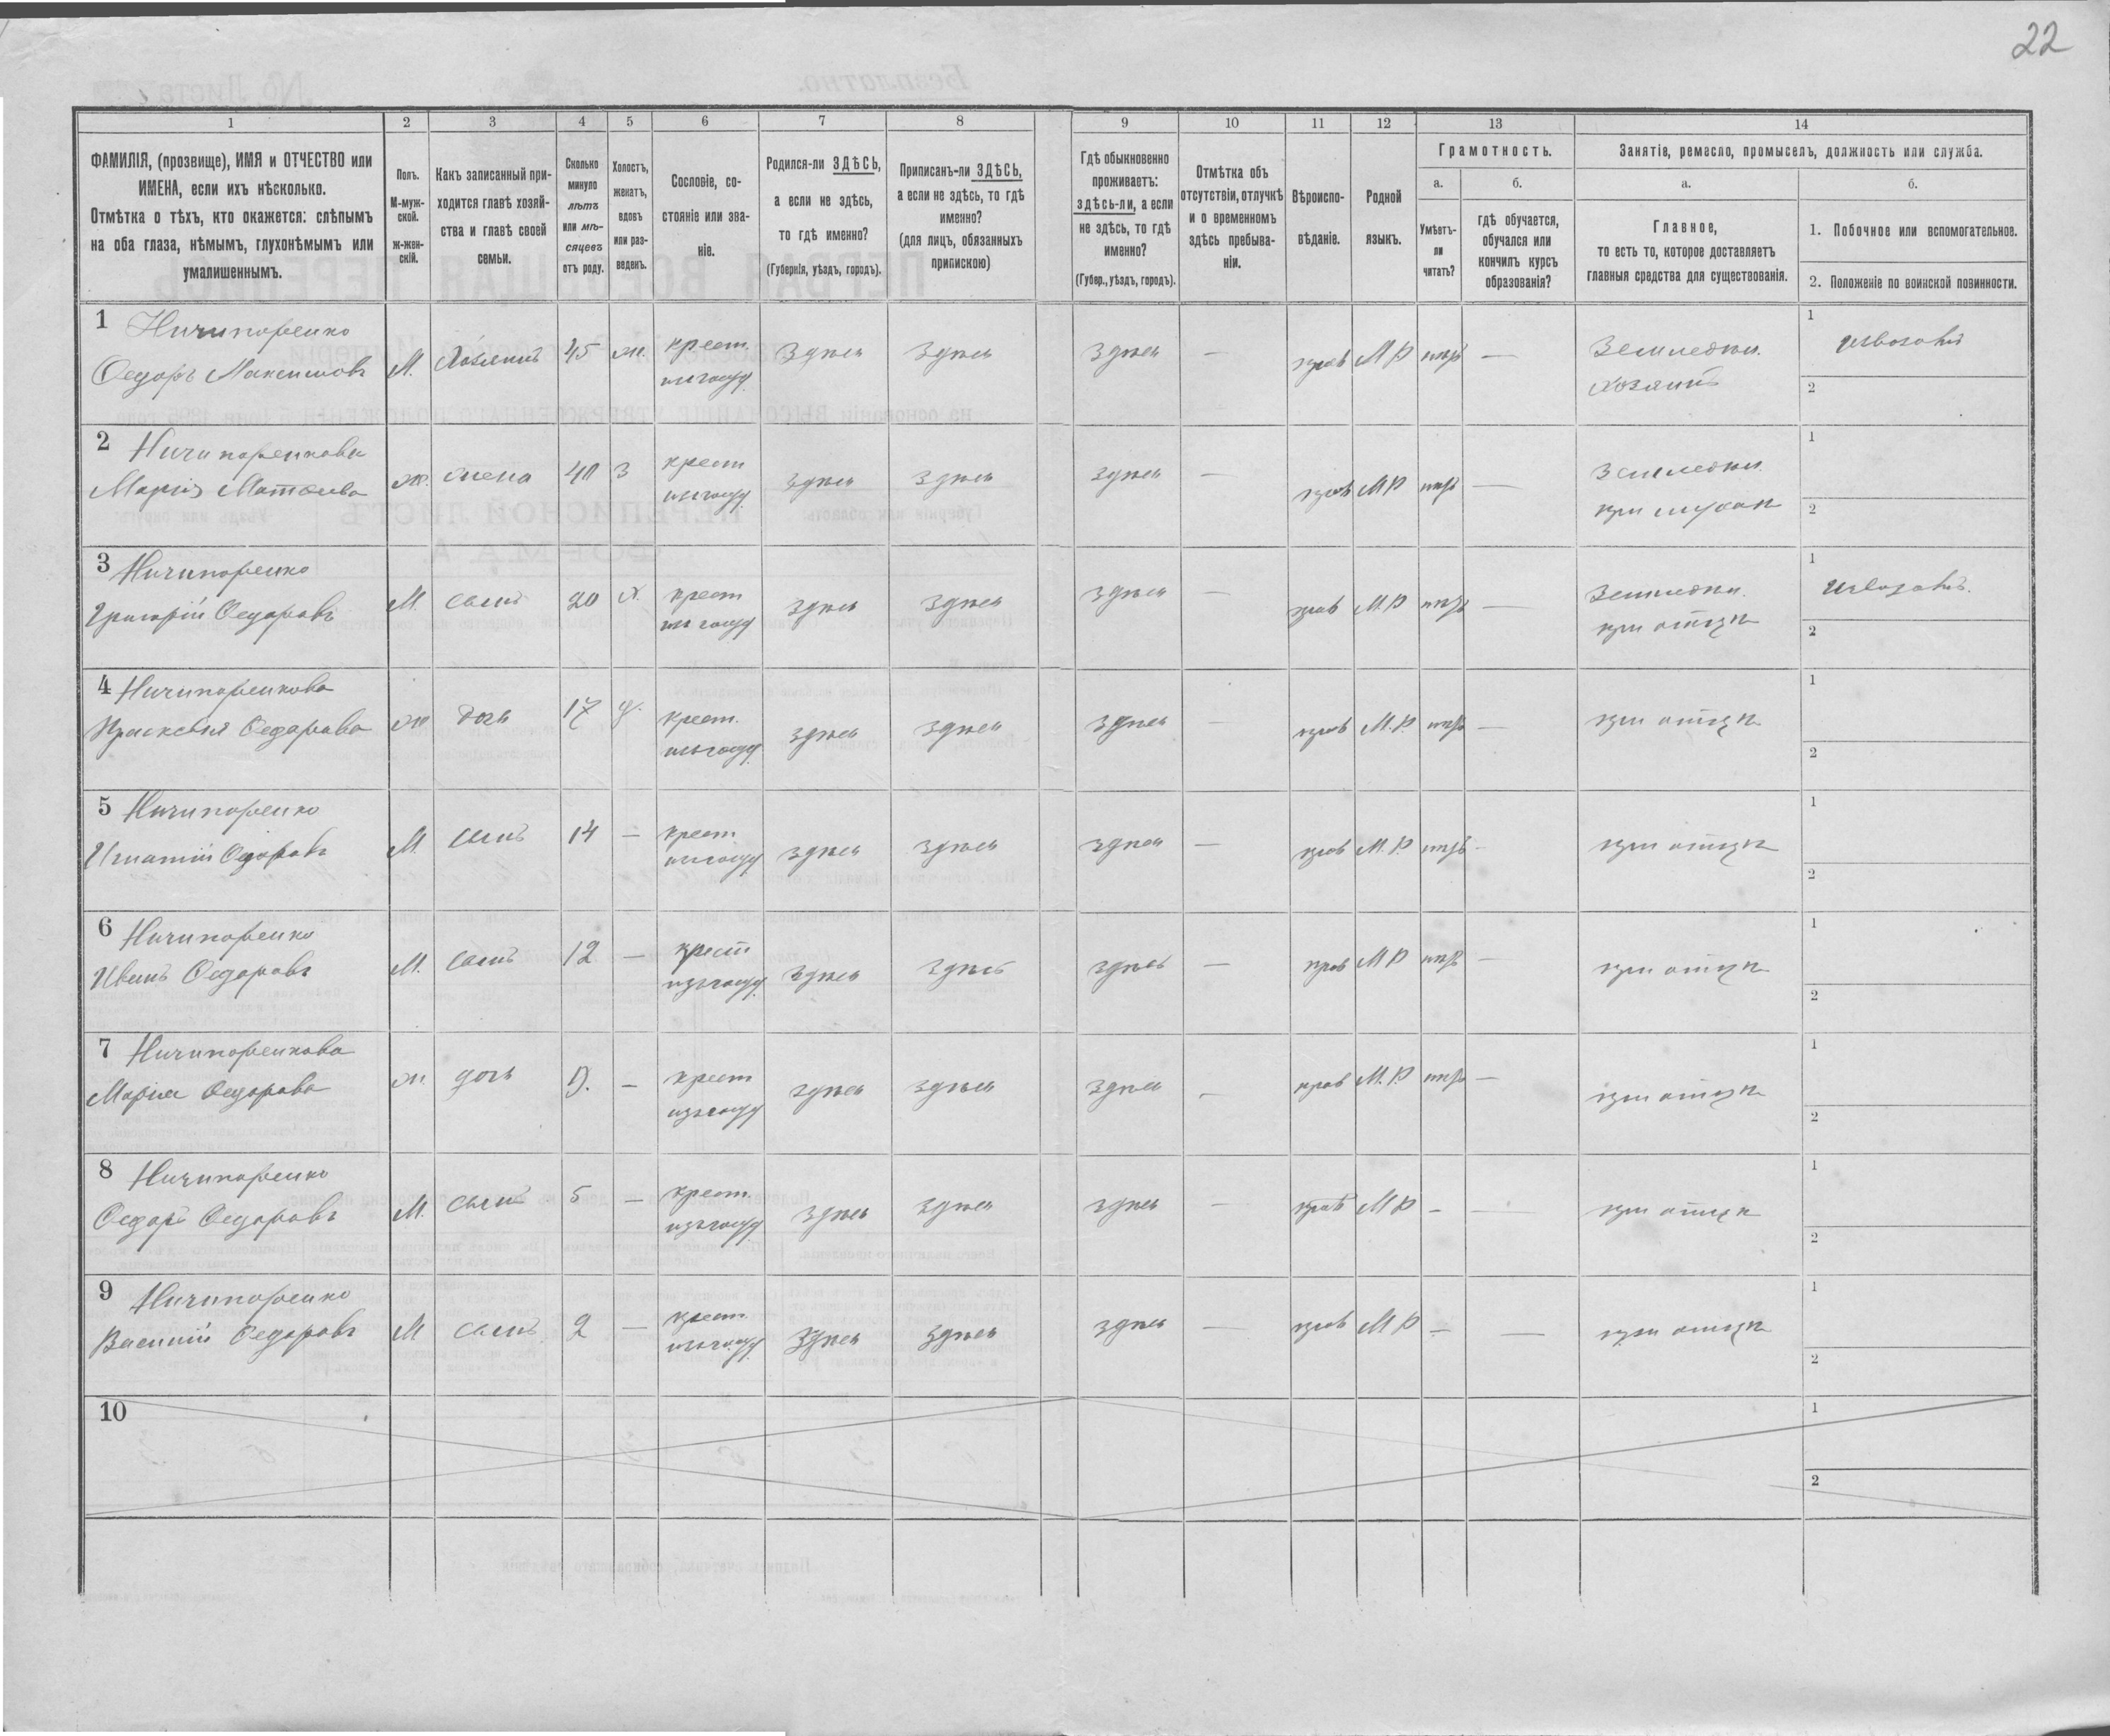 22
1
2
3
4
5
6
7
8
9
10
11
12
13
14
ФАМИЛІЯ, (прозвище), ИМЯ и ОТЧЕСТВО или
ИМЕНА, если ихъ нѣсколько.
Отмѣтка о тѣхъ, кто окажется: слѣпымъ
на оба глаза, нѣмымъ, глухонѣмымъ или
умалишеннымъ.
Полъ.
М-муж-
ской.
ж-жен-
скій.
Какъ записанный при-
ходится главѣ хозяй-
ства и главѣ своей
семьи.
Сколько
минуло
лѣтъ
или мѣ-
сяцевъ
отъ роду.
Холостъ,
женатъ,
вдовъ
или раз-
веденъ.
Сословіе, со-
стояніе или зва-
ніе.
Родился-ли ЗДѢСЬ,
а если не здѣсь,
то гдѣ именно?
(Губернія, уѣздъ, городъ).
Приписанъ-ли ЗДѢСЬ,
а если не здѣсь, то гдѣ
именно?
(для лицъ, обязанныхъ
припискою)
Гдѣ обыкновенно
проживаетъ:
здѣсь-ли, а если
не здѣсь, то гдѣ
именно?
(Губер., уѣздъ, городъ).
Отмѣтка объ
отсутствіи, отлучкѣ
и о временномъ
здѣсь пребыва-
ніи.
Вѣроиспо-
вѣданіе.
Родной
языкъ.
Грамотность.
а.
Умѣетъ-
ли
читать?
б.
гдѣ обучается,
обучался или
кончилъ курсъ
образованія?
Занятіе, ремесло, промыселъ, должность или служба.
а.
Главное,
то есть то, которое доставляетъ
главныя средства для существованія.
б.
1. Побочное или вспомогательное.
2. Положеніе по воинской повинности.
1 Ничипоренко
Федоръ Максимовъ М. Хозяинъ 45 ж. крест. здѣсь здѣсь здѣсь — прав М Р —
Земледѣл. хозяинъ
1 извозомъ
2
2 Ничипоренкова
Марія ж. жена 40 З крест здѣсь здѣсь здѣсь — прав М Р —
Земледѣл.
при мужѣ
1
2
3 Ничипоренко
Григорій Федоровъ М. сынъ 20 х. крест здѣсь здѣсь здѣсь — прав М.Р —
Земледѣл.
при отцѣ
1 извозомъ.
2
4 Ничипоренкова
Прасковья Федорова ж дочь 17 крест. здѣсь здѣсь здѣсь — прав М.Р. —
при отцѣ
1
2
5 Ничипоренко
Игнатій Федоровъ М. сынъ 14 — крест. здѣсь здѣсь здѣсь — прав М.Р. —
при отцѣ
1
2
6 Ничипоренко
Иванъ Федоровъ М. сынъ 12 — крест здѣсь здѣсь здѣсь — прав М Р —
при отцѣ
1
2
7 Ничипоренкова
Марія Федорова ж. дочь — крест здѣсь здѣсь здѣсь — прав М.Р. —
при отцѣ
1
2
8 Ничипоренко
Федоръ Федоровъ М. сынъ 5 — крест. здѣсь здѣсь здѣсь — прав М Р — —
при отцѣ
1
2
9 Ничипоренко
Василій Федоровъ М сынъ 2 — крест. здѣсь здѣсь здѣсь — прав М Р — —
при отцѣ
1
2
10
1
2